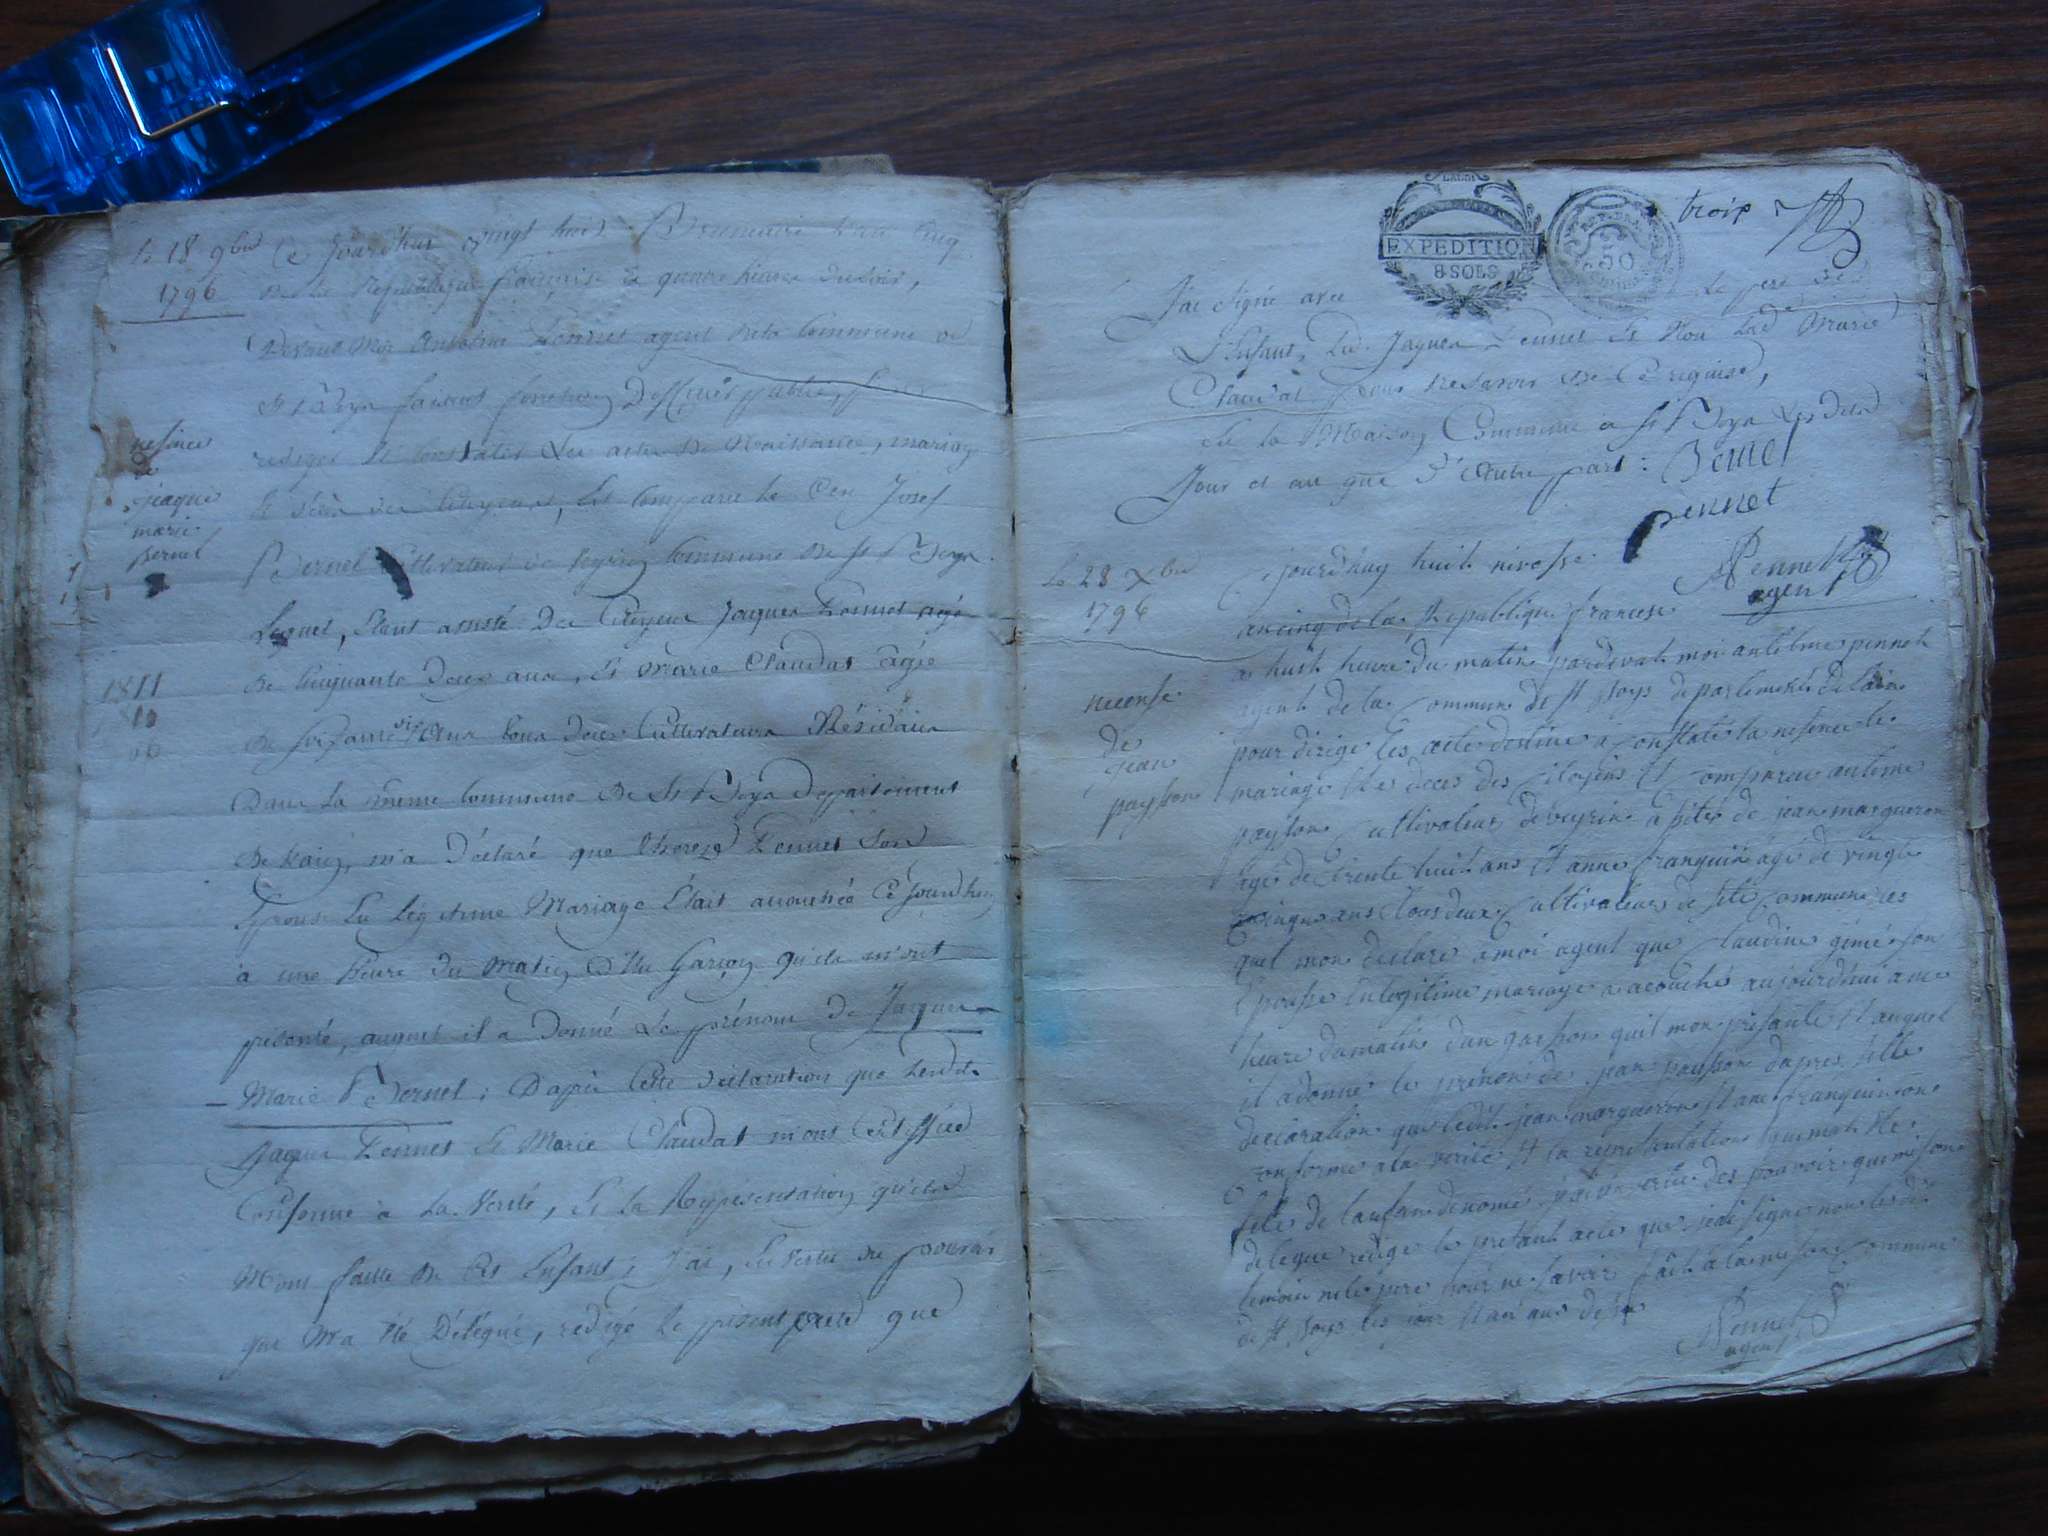 le 18 9bre
1796
Ce Jourd'hui vingt huit Brumaire l'an cinq
de la République française à quatre heures du soir,
Devant moi Antelme Pennet agent de la Commune de
St Boys faisant fonction D'officier public, pour
rediger et Constater Les actes de Naissance, mariage
et décès des Citoyens, Est Comparu le Cen Josef
Pernet Cultivateur de veyrin Commune de St Boys
Lequel, Etant assisté De Citoyen Jaques Pennet agé
De Cinquante Deux ans, Et Marie Claudat agée
De soixante six ans tous deux Cultivateurs Résidans
Dans La même Commune De St Boys Departement
De l'ain, m'a Déclaré que Pennet Son
Epouse En légitime Mariage Etait accouchée Ce Jourd'huy
à une heure du Matin D'un Garçon qu'ils m'ont
présenté, auquel il a Donné Le prénom De Jaques
Marie Pernet ; D'après Cette déclaration que lesdits
Jaques Pennet Et Marie Claudat m'ont Certifiée
Conforme à La Verité, Et la Représentation qu'ils
M'ont faitte De Cet Enfant ; J'ai, En vertu des pouvoirs
que M'a été Délégué, rédigé Le présent acte que
nesance
de
jaque
marie
pernet
1811
EXPEDITION
8 SOLS
50
troix
J'ai signé avec le pere de
L'Enfant, Led. Jaques Pennet Et Non Lad Marie
Claudat pour ne Savoir de Ce requise,
En la Maison Commune a St Boys Lesdits
Jour et an que D'Autre part : Pernet
pennet
APennet
agent
le 28 Xbre
1796
nesense
de
jean
paysson
Ce jourd'huy huit nivosse
an cinq de la Republique francese
a huit heure du matin pardevant moi antelme pennet
agent de la Commune de St Boys departement de l'ain
pour dirige les acte destine a Constate la nesence le
mariage et le deces des Citoyens Et Comparu antelme
paysson Cultivateur de veyrin assité de jean margueron
agé de trente huit ans Et anne franquin agé de vingt
cinque ans tous deux Cultivateurs de site Commune les
quel mon declare a moi agent que Claudine gimé son
Epousse En legitime mariage a acouché aujourd'hui a une
heure du matin d'un gasson qu'il mon presanté Et auquel
il a donne le prenon de jean paysson d'apres sette
declaration que ledit jean margueron Et ane franquin on
Conforme a la verité Et la representation qui mont Ete
fete de lanfan denomé j'ai En vertu des pouvoir qui mi son
delegue redige le present acte que j'ai signe non lesdit
temoin ni le pere pour ne savoir fait a la meson Commune
de St Boys les jour Et an que de su
APennet
agent